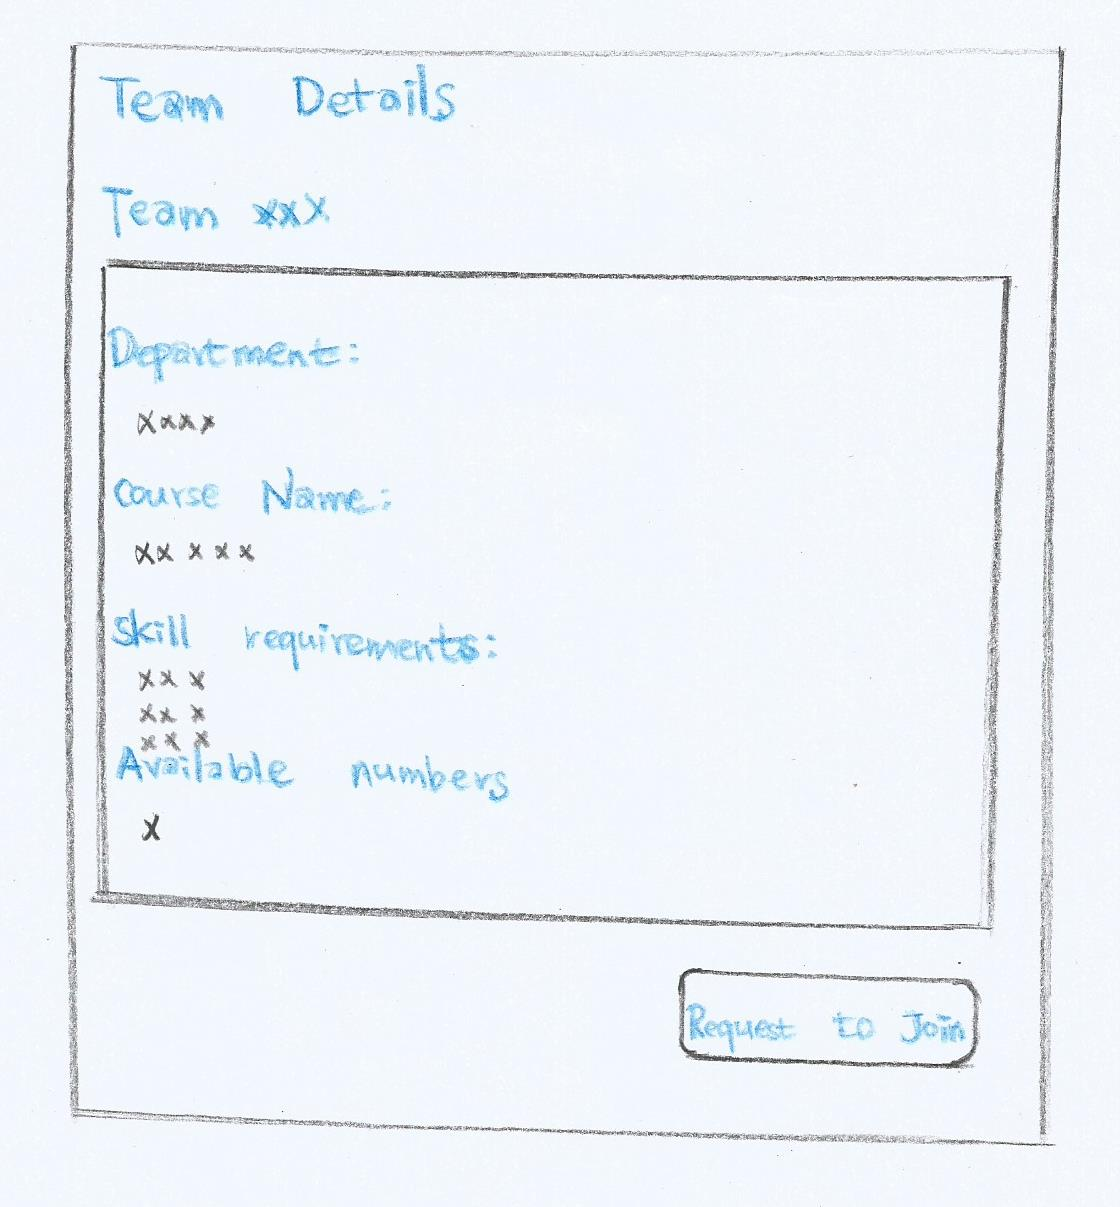 Team Details
Team xxx
Department:
xxxx
Course Name:
xx x x x
Skill requirements:
xx x
xx x
x x x
Available numbers
x
Request to Join